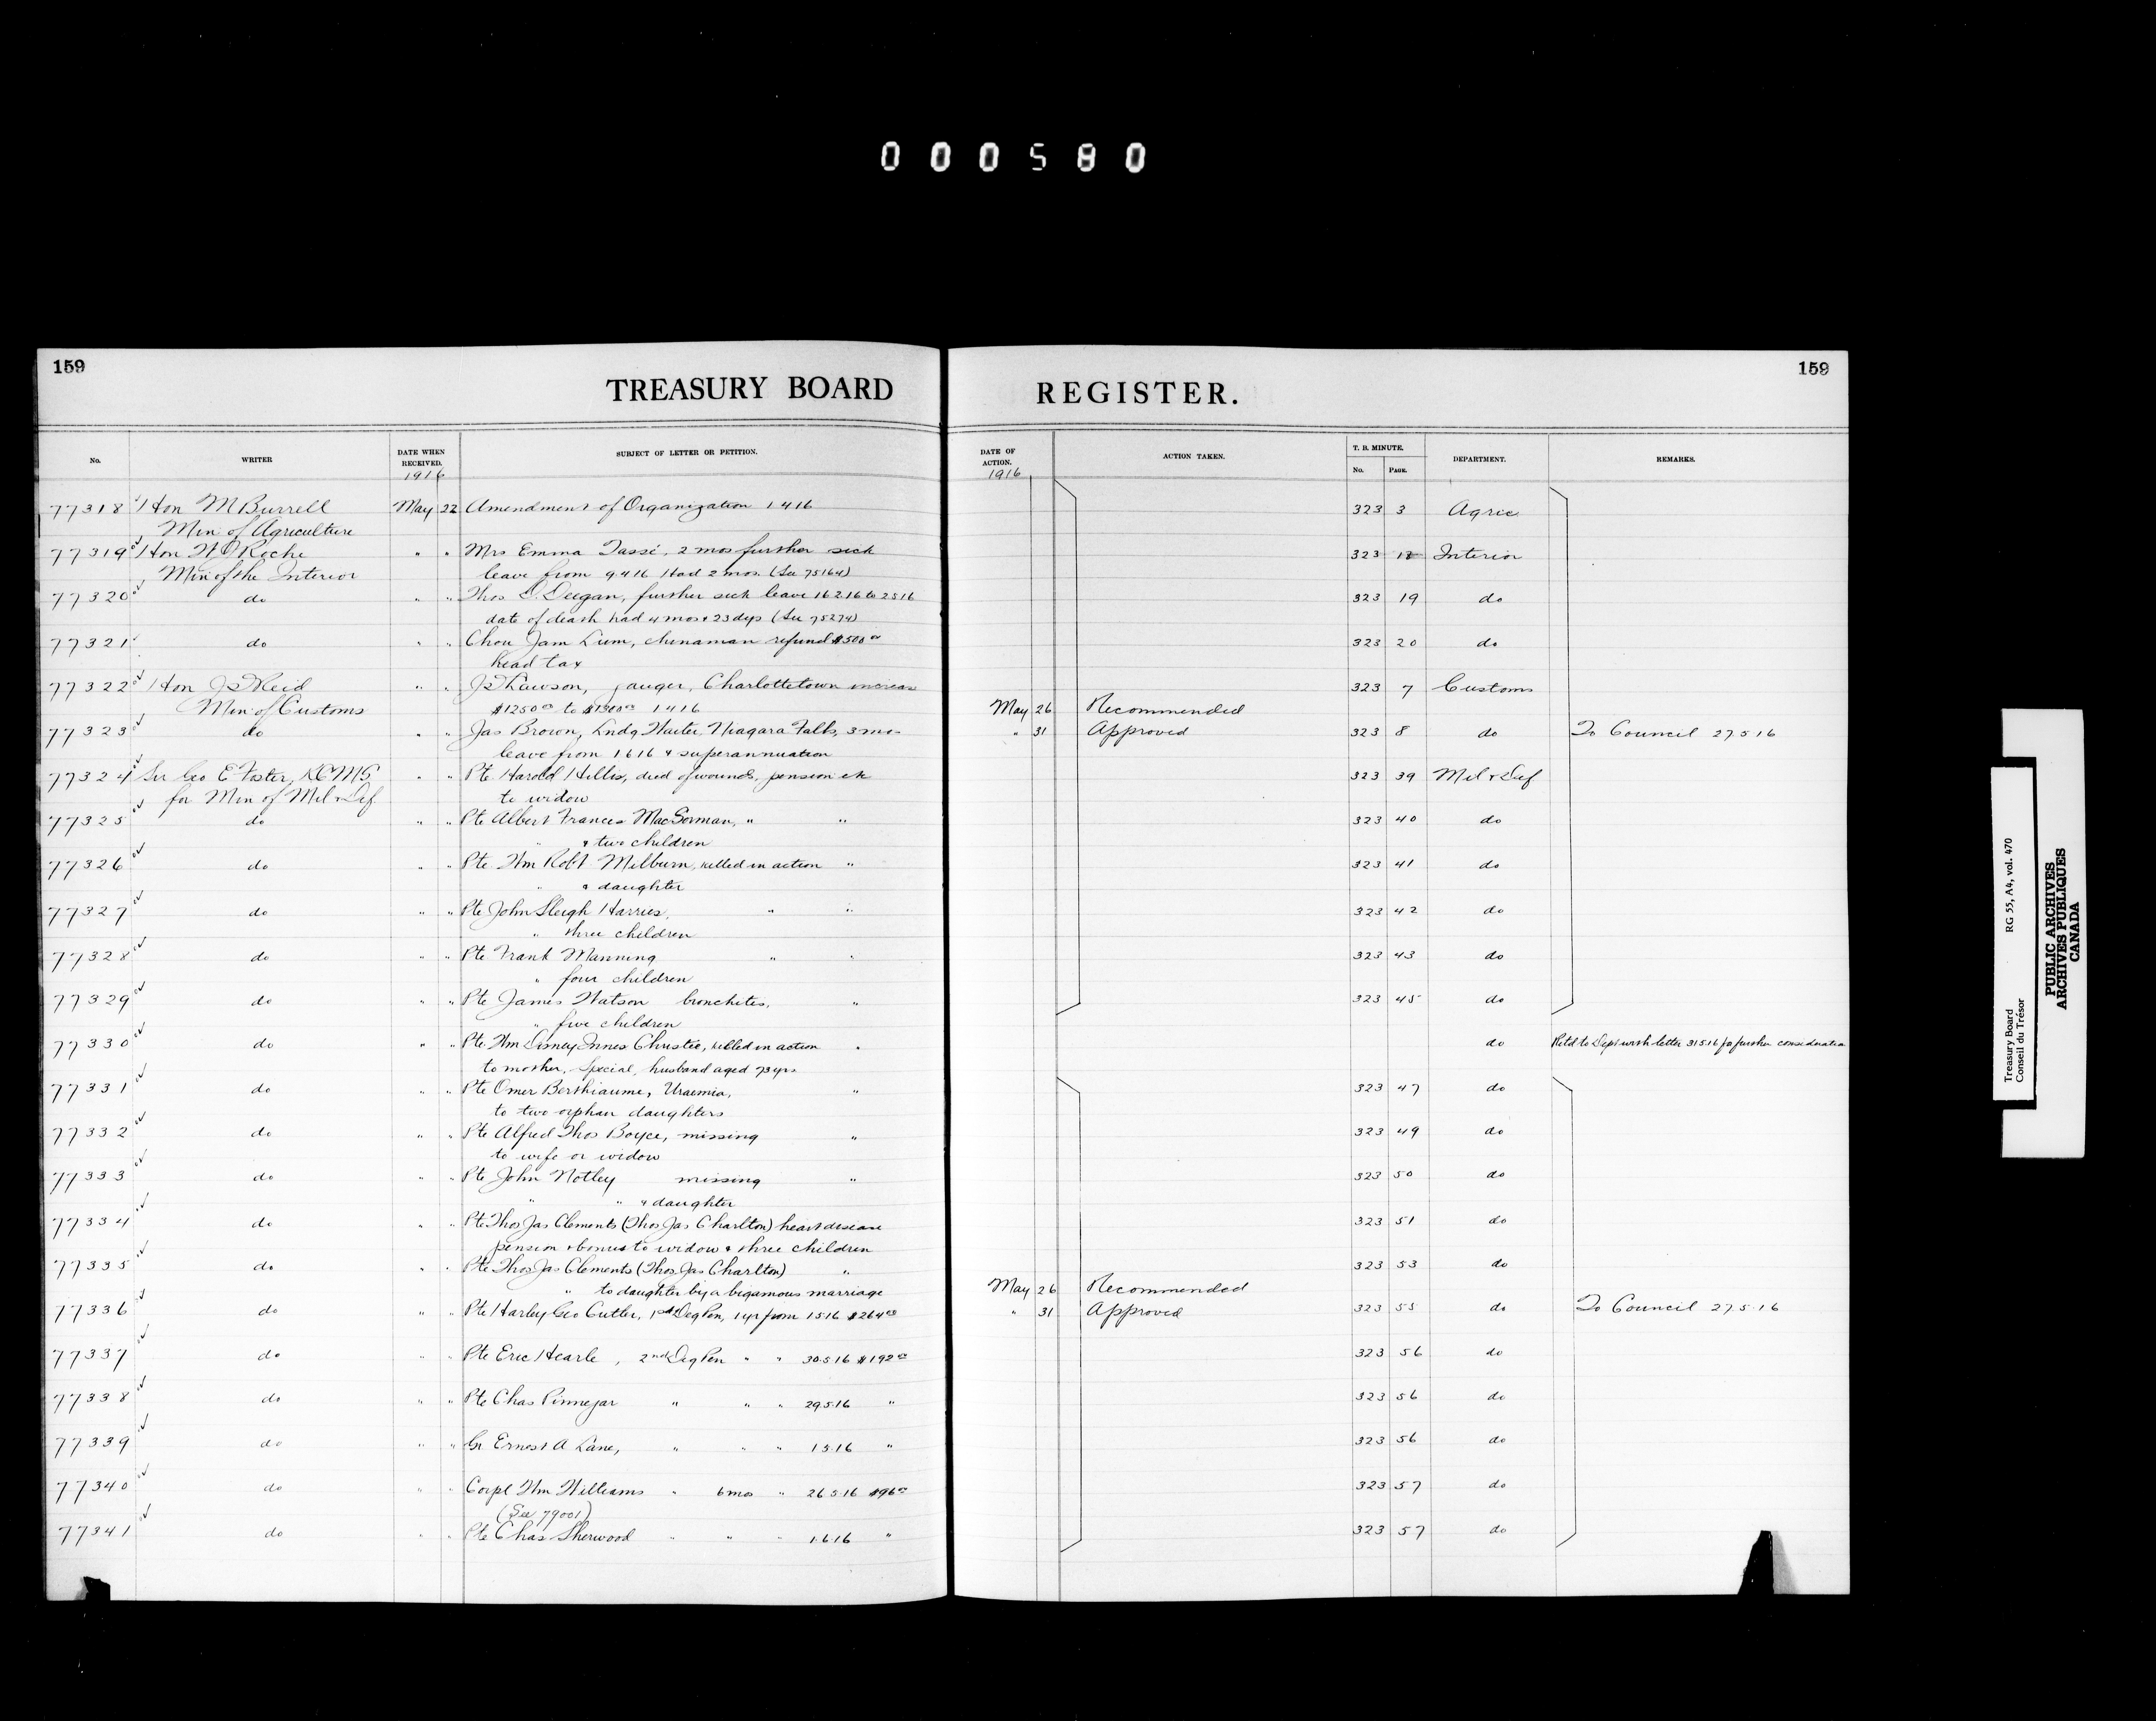 000580
159
159
TREASURY BOARD REGISTER.
No. WRITER DATE WHEN RECEIVED. SUBJECT OF LETTER OR PETITION. DATE OF ACTION. ACTION TAKEN. T. B. MINUTE. No. PAGE. DEPARTMENT. REMARKS.
1916 1916
77318 Hon M Burrell May 22 Amendment of Organization 1 4 16 323 3 Agric
Min of Agriculture
77319 Hon W J Roche " " Mrs Emma Tassé, 2 mos further sick 323 Interior
Min of the Interior leave from 9.4.16 Had 2 mos. (See 75164)
77320 do " " Thos D. Deegan, further sick leave 16 2 16 to 2 5 16 323 19 do
date of death had 4 mos & 23 dys (See 75274)
77321 do " " Chou Jam Lum, chinaman refund $500 00 323 20 do
head tax
77322 Hon J D Reid " " Lawson, gauger, Charlottetown increase 323 7 Customs
Min of Customs $1250 00 to $1300 00 1 4 16 May 26 Recommended
77323 do " " Jas Brown, Lndg Waiter, Niagara Falls, 3 mos " 31 Approved 323 8 do To Council 27 5 16
leave from 1 6 16 & superannuation
77324 Sir Geo E Foster, KCMG " " Pte Harold Hillis, died of wounds, pension etc 323 39 Mil & Def
for Min of Mil & Def to widow
77325 do " " Pte Albert Frances MacGorman, " " 323 40 do
" & two children
77326 do " " Pte Wm Robt Milburn, killed in action " 323 41 do
" & daughter
77327 do " " Pte John Sleigh Harries, " " 323 42 do
" three children
77328 do " " Pte Frank Manning " " 323 43 do
" four children
77329 do " " Pte James Watson bronchitis, " 323 45 do
" five children
77330 do " " Pte Wm Disney Innes Christie, killed in action " do Retd to Dept with letter 31 5 16 for further consideration
to mother, special, husband aged 73 yrs
77331 do " " Pte Omer Berthiaume, Uraemia, " 323 47 do
to two orphan daughters
77332 do " " Pte Alfred Thos Boyce, missing " 323 49 do
to wife or widow
77333 do " " Pte John Notley missing " 323 50 do
" " & daughter
77334 do " " Pte Thos Jas Clements (Thos Jas Charlton) heart disease 323 51 do
pension & bonus to widow & three children
77335 do " " Pte Thos Jas Clements (Thos Jas Charlton) " 323 53 do
" to daughter by a bigamous marriage May 26 Recommended
77336 do " " Pte Harley Geo Cutler, 1st Deg Pen, 1 yr from 1 5 16 $264 00 " 31 Approved 323 55 do To Council 27.5.16
77337 do " " Pte Eric Hearle, 2nd Deg Pen " " 30.5.16 $192 00 323 56 do
77338 do " " Pte Chas Pinnegar " " " 29.5.16 " 323 56 do
77339 do " " Gr Ernest A Lane, " " " 1 5 16 " 323 56 do
77340 do " " Corpl Wm Williams " 6 mos " 26 5 16 $96 00 323 57 do
(See 79001)
77341 do " " Pte Chas Sherwood " " " 1.6.16 " 323 57 do
Treasury Board RG 55, A4, vol. 470
Conseil du Trésor
PUBLIC ARCHIVES
ARCHIVES PUBLIQUES
CANADA